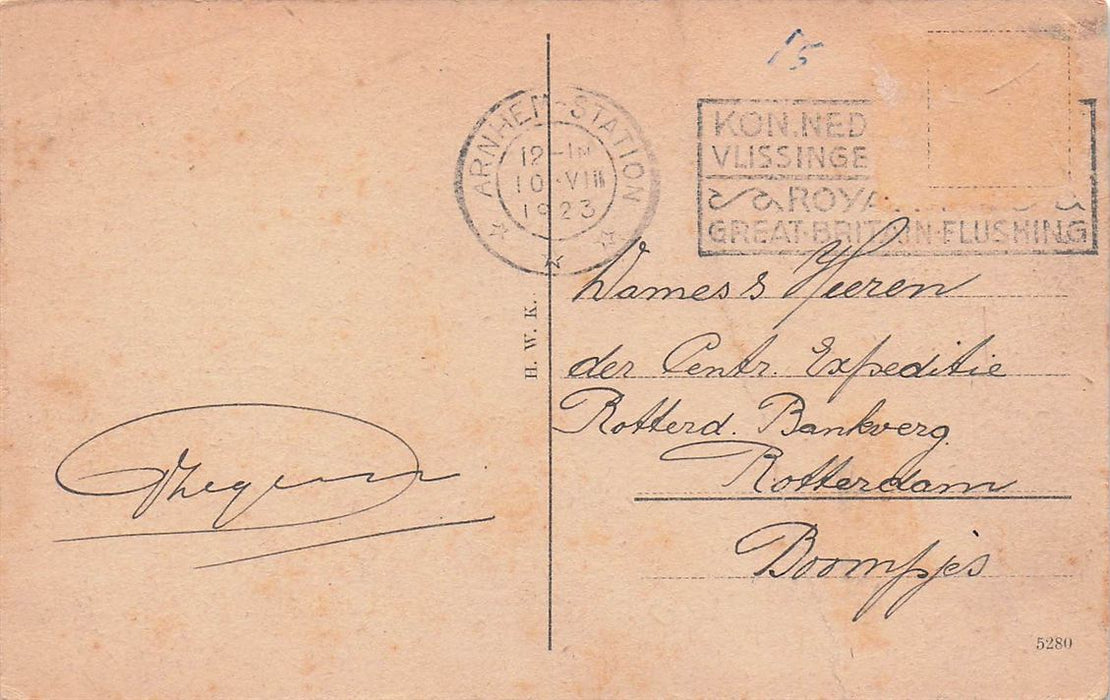 15
ARNHEM-STATION
12-1N
10·VIII
1923
KON.NED
VLISSINGE
ROYA
GREAT-BRITAIN-FLUSHING
H. W. K.
Dames & Heeren
der Centr. Expeditie
Rotterd. Bankverg.
Rotterdam
Boompjes
5280